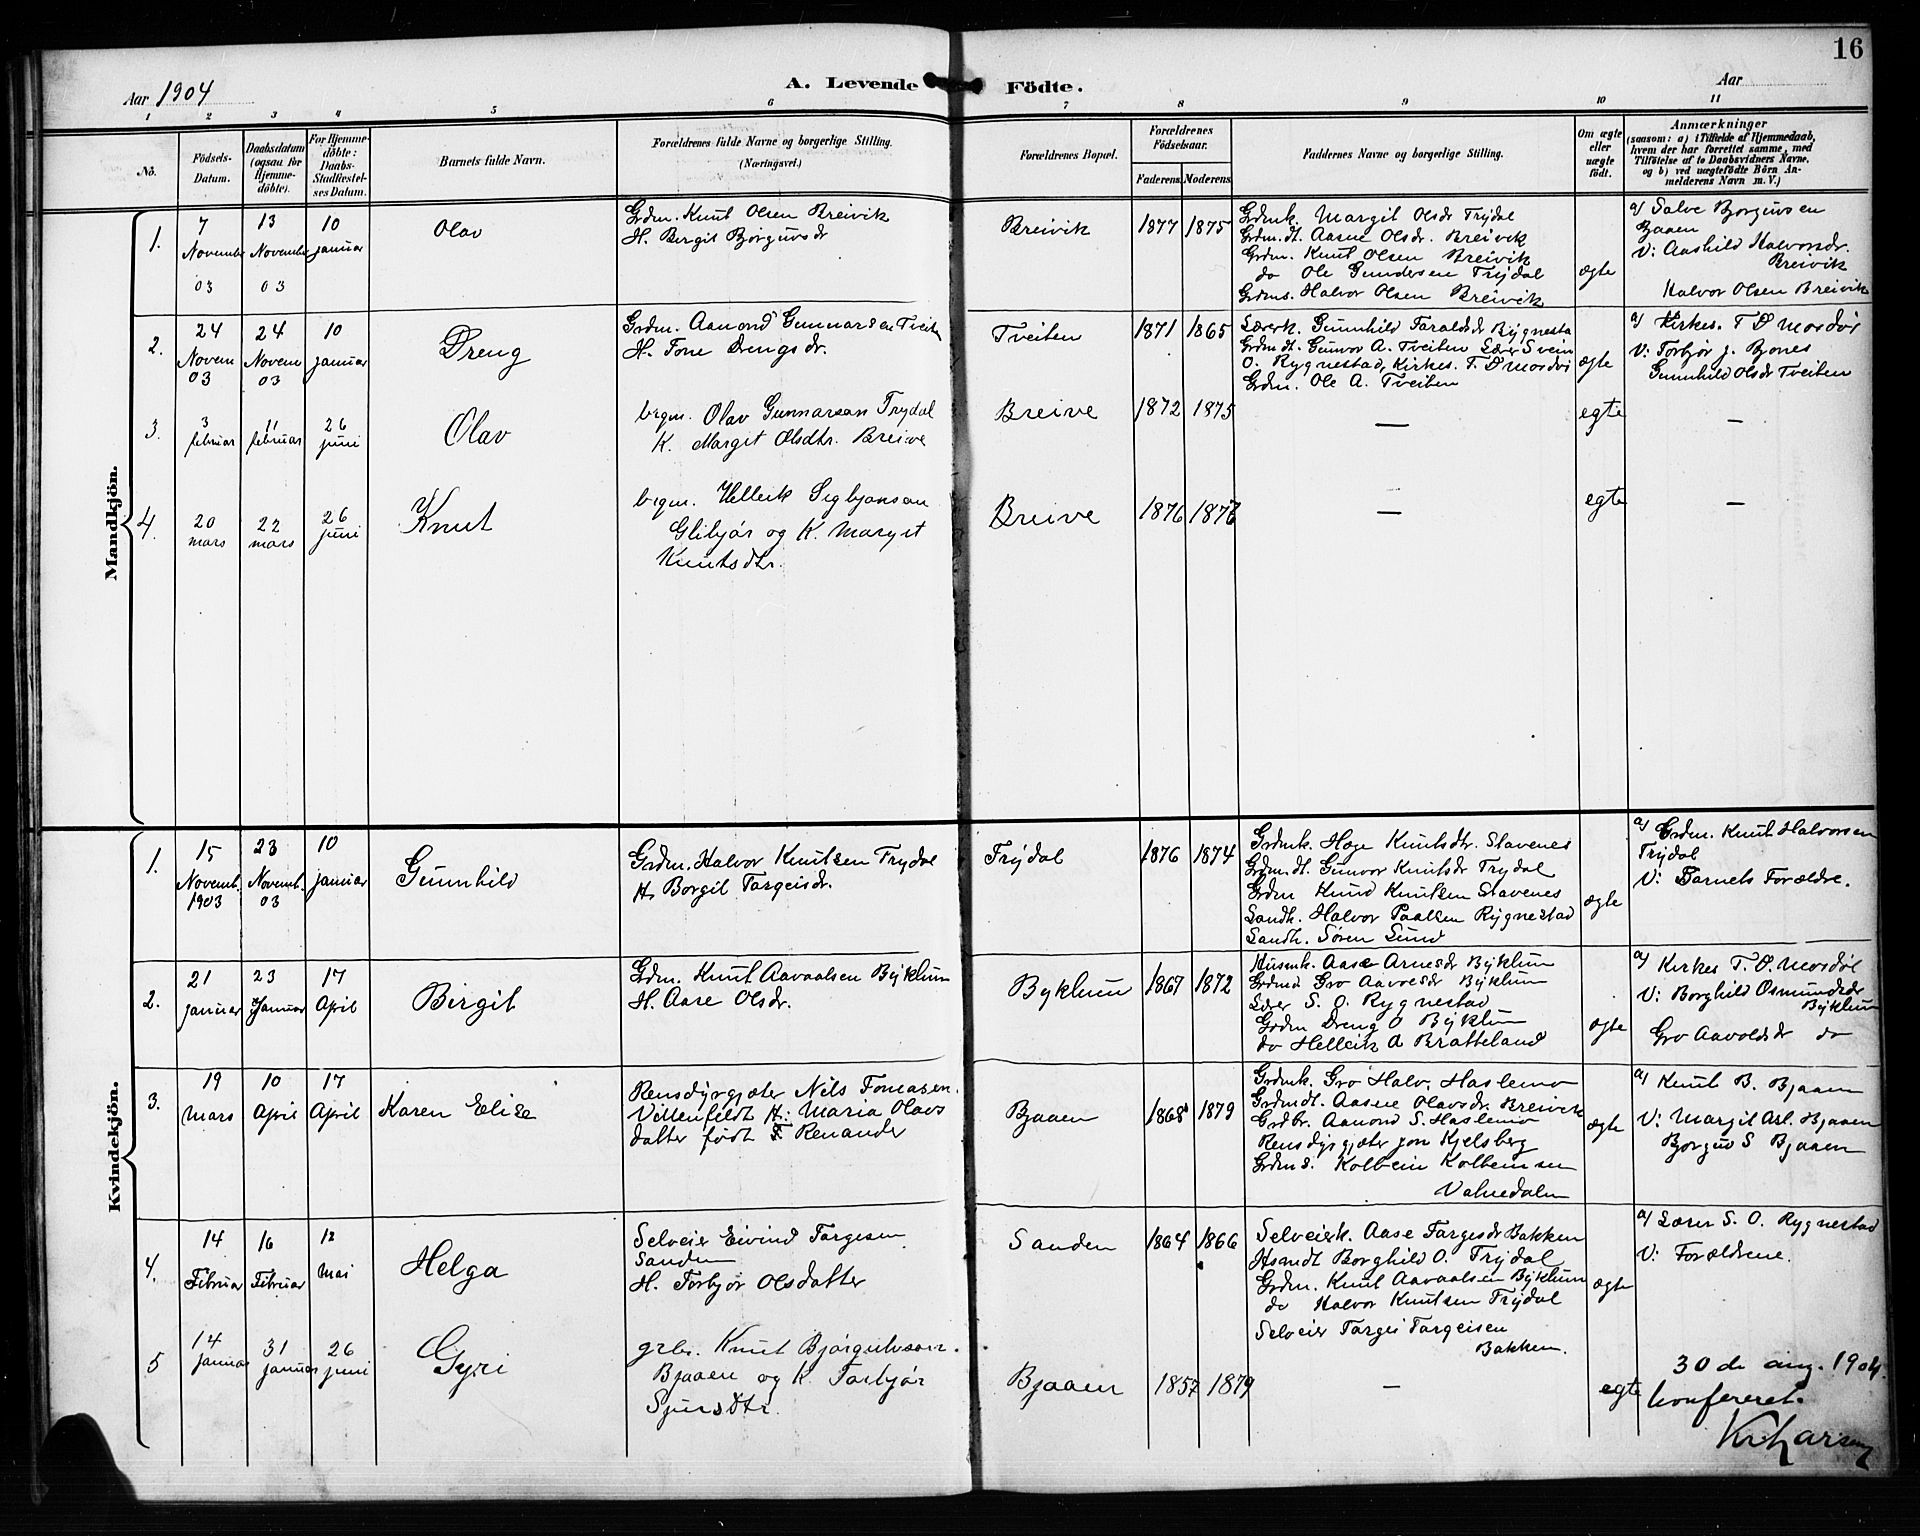 16
Aar 1904
A. Levende Födte.
Aar
1 2 3 4 5 6 7 8 9 10 11
No.
Födsels-
Datum.
Daabsdatum
(ogsaa for
Hjemme-
döbte).
For Hjemme-
döbte:
Daabs-
Stadfæstel-
ses Datum.
Barnets fulde Navn.
Forældrenes fulde Navne og borgerlige Stilling.
(Næringsvei.)
Forældrenes Bopæl.
Forældrenes
Födselsaar.
Faderens. Moderens.
Faddernes Navne og borgerlige Stilling.
Om ægte
eller
uægte
födt.
Anmærkninger
(saasom: a) i Tilfælde af Hjemmedaab,
hvem der har forrettet samme, med
Tilföielse af to Daabsvidners Navne,
og b) ved uægtefödte Börn An-
melderens Navn m. V.)
Mandkjön.
1.
7
Novembr
03
13
Novembr
03
10
Januar
Olav
Grdm. Knut Olsen Breivik
H. Birgit Bjorguvsdr
Breivik
1877 1875
Grdmk. Margit Olsdr Trydal
Grdm.dt. Aasne Olsdr. Breivik
Grdm. Knut Olsen Breivik
do Ole Gundersen Trydal
Grdms. Halvor Olsen Breivik
ægte
a/ Salve Bjorguvsen
Bjaaen
V: Aashild Halvorsdr.
Breivik
Halvor Olsen Breivik
2.
24
Novem
03
24
Novem
03
10
Januar
Dreng
Grdm. Aamond Gunnarsen Tveiten
H. Tone Drengsdr.
Tveiten
1871 1865
Lærerk. Gunnhild Taraldsdr Rygnestad
Grdmdt. Gunvor A. Tveiten Lærer Svein
O. Rygnestad, Kirkes. T. O Mosdøl
Grdm. Ole A. Tveiten
ægte
a/ Kirkes. T O Mosdøl
V: Torbjør J. Bjones
Gunnhild Olsdr Tveiten
3.
3
februar
11
februar
26
juni
Olav
brgm. Olav Gunnarsøn Trydal
K. Margit Olsdtr. Breive
Breive
1872 1875
—
egte
—
4.
20
mars
22
mars
26
juni
Knut
brgm. Helleik Sigbjønsøn
Glibjør og K. Margit
Knutsdtr.
Breive
1876 1877
—
egte
—
Kvindekjön.
1.
15
Novemb.
1903
23
Novemb.
03
10
Januar
Gunnhild
Grdm. Halvor Knutsen Trydal
H. Borgil Targeisdr.
Trydal
1876 1874
Grdmk. Hoge Knutsdtr. Stavenes
Grdm.dt. Gunvor Knutsdr Trydal
Grdm Knud Knutsen Stavenes
Landh. Halvor Paalsen Rygnestad
Landh. Søren Lund
ægte
a/ Grdm. Knut Halvorsen
Trydal
V: Barnets Forældre.
2.
21
Januar
23
Januar
17
April
Birgit
Grdm. Knut Aavaalsen Byklum
H. Aase Olsdr.
Byklum
1867 1872
Husmk. Aase Arnesdr Byklum
Grdmd Gro Aavolsdr Byklum
Lærer S. O. Rygnestad
Grdm Dreng O Byklum
do Helleik A Bratteland
ægte
a/ Kirkes T. O. Mosdøl
V: Borghild Osmundsdr
Byklum
Gro Aavoldsdr do
3.
19
Mars
10
April
17
April
Karen Elise
Rensdyrgjæter Nils Tomasen.
Villenfeldt H: Maria Olavs
datter født Renander
Bjaaen
1868 1879
Grdmk. Gro Halv. Haslemo
Grdmdt. Aasne Olavsdr. Breivik
Grdbr. Aamond S. Haslemo
Rensdyrgjæter Jon Kjelsberg
Grdms. Kolbein Kolbeinsen
Valuedalen
ægte
a/ Knut B. Bjaaen
V: Margit Asl. Bjaaen
Bjorguv S Bjaaen
4.
14
Februar
16
Februar
12
Mai
Helga
Selveier Eivind Targesen
Sanden
H. Torbjør Olsdatter
Sanden
1864 1866
Selveierk. Aase Targesdr Bakken
Hsmdt Borghild O. Trydal
Grdm. Knut Aavaalsen Byklum
do Halvor Knutsen Trydal
Selveier Targei Targeisen
Bakken.
ægte
a/ Lærer S. O. Rygnestad
V: Forældrene.
5
14
Januar
31
Januar
26
juni
Gyri
grbr. Knut Bjørgulvsøn.
Bjaaen og K. Torbjør
Sjursdtr.
Bjaaen
1857 1879
—
egte
30 de aug. 1904.
konfereret.
Kr. Larsen